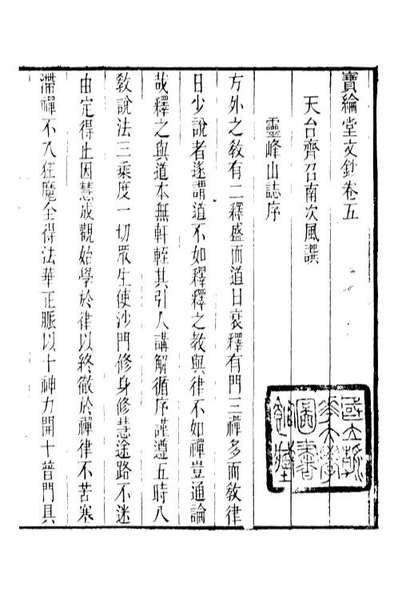 寶綸堂文鈔卷五
天台齊召南次風譔
靈峰山誌序
方外之敎有二釋盛而道日衰釋有門三禪多而敎律
日少說者遂謂道不如釋釋之敎與律不如禪豈通論
哉釋之與道本無軒輊其引人講解循序謹遵五時八
敎說法三乘度一切眾生使沙門修身修慧途路不迷
由定得止因慧成觀始學於律以終徹於禪律不苦寒
滯禪不入狂魔全得法華正脈以十神力開十普門具
國立
大學
圖書
館藏